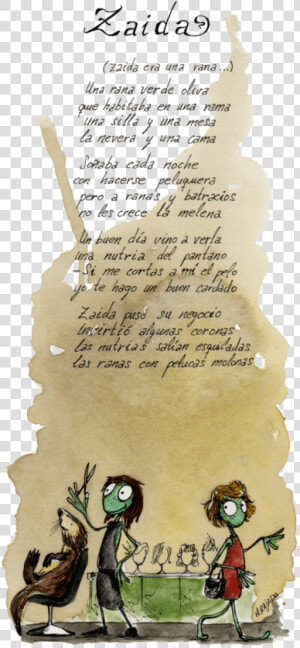 Zaida
(Zaida era una rana...)
Una rana verde oliva
que habitaba en una rama
una silla y una mesa
la nevera y una cama
Soñaba cada noche
con hacerse peluquera
pero a ranas y batracios
no les crece la melena
Un buen día vino a verla
una nutria del pantano
-Si me cortas a mí el pelo
yo te hago un buen cardado
Zaida pusó su negocio
invirtió algunas coronas
las nutrias salían esquiladas
las ranas con pelucas molonas